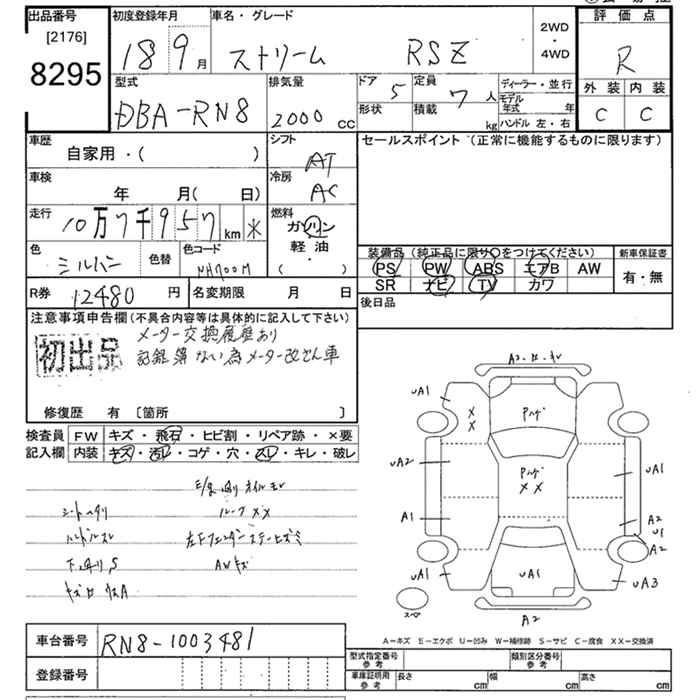 出品番号
[2176]
8295
初度登録年月
18 9 月
車名・グレード
ストリーム RSZ
2WD
・
4WD
評価点
R
外装 内装
C C
型式
DBA-RN8
排気量
2000 cc
ドア 5
形状
定員 7 人
積載 kg
ディーラー・並行
モデル年式 年
ハンドル 左・右
車歴
自家用・( )
シフト
AT
セールスポイント (正常に機能するものに限ります)
車検
年 月( 日)
冷房
AC
走行
10万7千957 km ※
燃料
ガソリン
軽・油
( )
色
色替
色コード
NH700M
装備品 (純正品に限り○をつけてください)
PS PW ABS エアB AW
SR ナビ TV カワ
新車保証書
有・無
R券 12480 円
名変期限 月 日
後日品
注意事項申告欄(不具合内容等は具体的に記入して下さい)
初出品
メーター交換履歴あり
記録簿ない為メーター改ざん車
修復歴 有 〔箇所 〕
検査員
記入欄
FW キズ・飛石・ヒビ割・リペア跡・×要
内装 キズ・汚レ・コゲ・穴・スレ・キレ・破レ
シートヘタリ
ルーフ XX
ハンドルスレ
AWキズ
uA1
XX
uA2
uA1
A1
A2
u1
A2
uA1
uA1
uA3
A2
スペア
A-キズ E-エクボ U-凹み W-補修跡 S-サビ C-腐食 XX-交換済
車台番号 RN8-1003481
登録番号
型式指定番号
参考
類別区分番号
参考
車庫証明用
参考
長さ cm 幅 cm 高さ cm